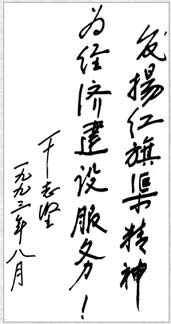 发揚红旗渠精神
为经济建设服务！
干志坚
一九九三年八月